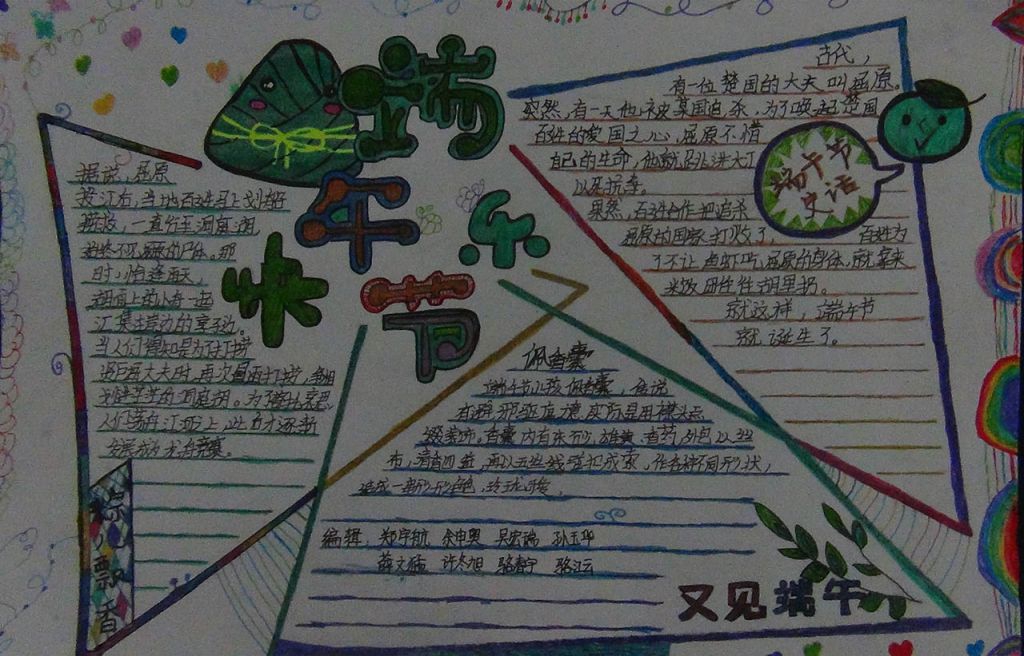 端午节快乐
据说，屈原
投江后，当地百姓马上划船
捞救，一直行至洞庭湖，
始终不见屈原的尸体。那
时，恰逢雨天，
湖面上的小舟一起
汇集在岸边的亭子边。
当人们得知是为了打捞
时，再次冒雨打捞，争相
划进茫茫的洞庭湖。为了寄托哀思，
人们荡舟江河上，此后才逐渐
发展成为龙舟竞赛。
粽儿飘香
古代，
有一位楚国的大夫叫屈原。
突然，有一天他被某国追杀，为了唤起楚国
百姓的爱国之心，屈原不惜
自己的生命，他就跳进大江
以示抗奈。
果然，百姓合作把追杀
屈原的国家打败了。百姓为
了不让鱼虾吃屈原的身体，就拿来
米饭
就这样，端午节
就诞生了。
端午节
史话
佩香囊
端午节小孩佩香囊，传说
有避邪驱瘟之意，实际是用于襟头点
缀装饰。香囊内有朱砂、雄黄、香药，外包以丝
布，清香四溢，再以五色丝线弦扣成索，作各种不同形状，
结成一串，形形色色，玲珑可爱。
编辑：郑宇航 余申奥 吴宏端 孙玉华
薛文硕 许冬旭 骆春宇 骆江云
又见端午